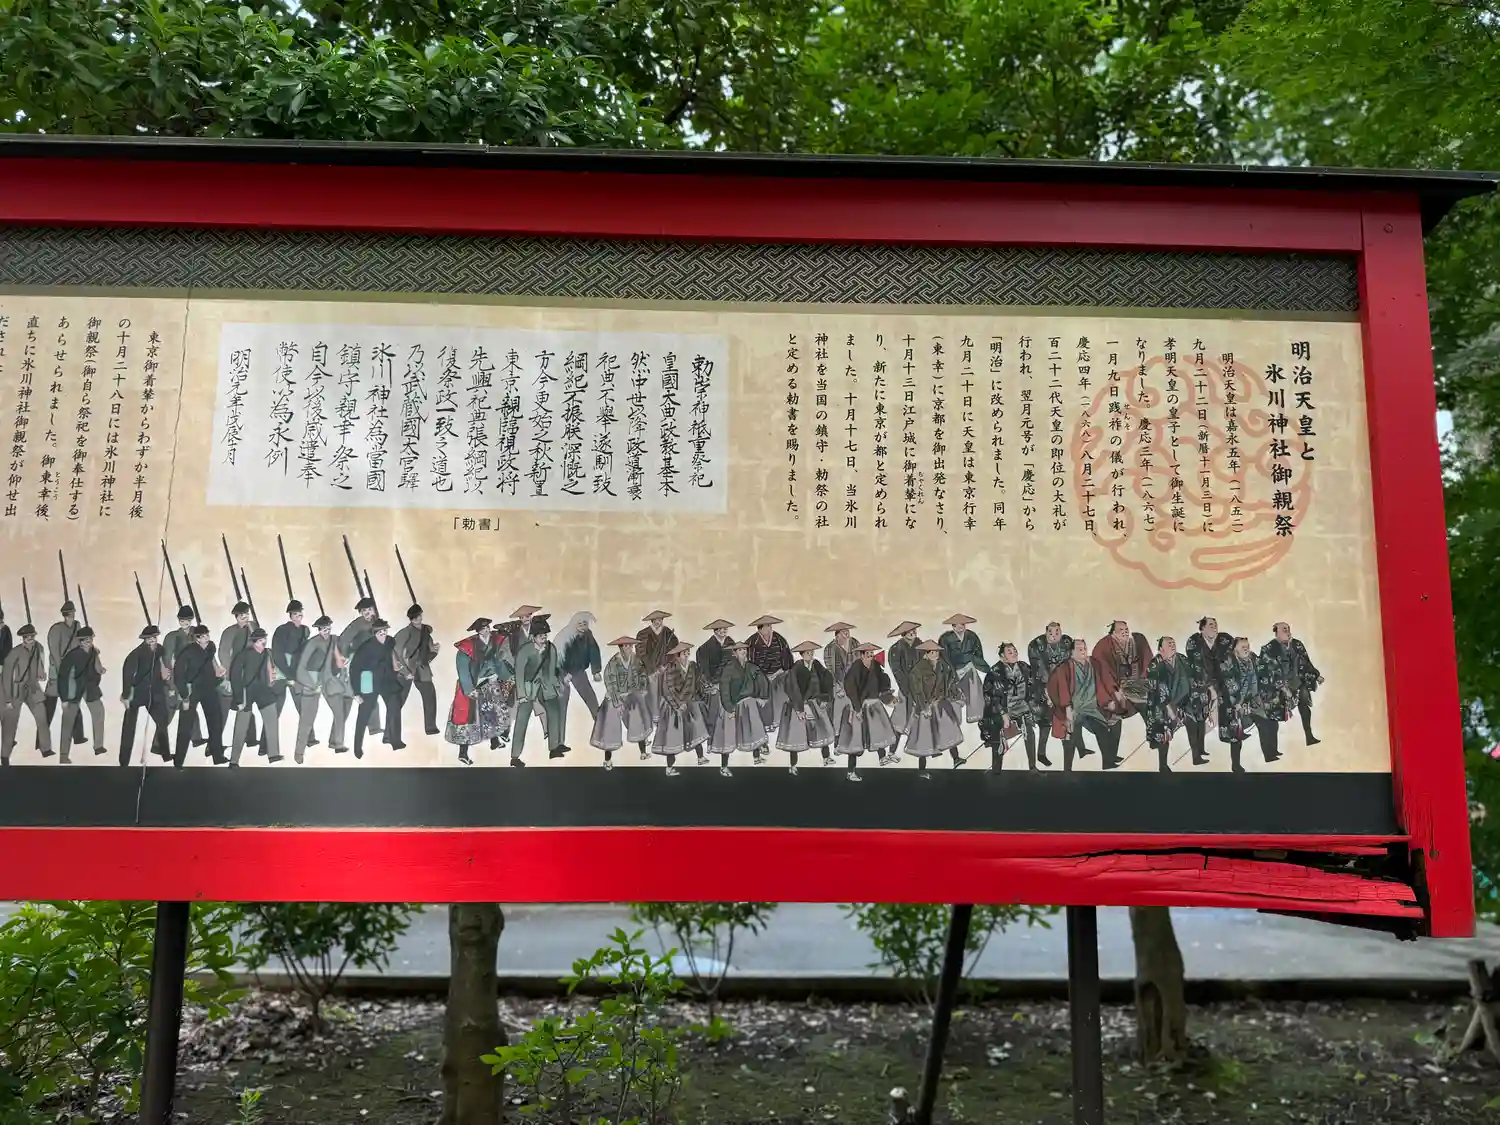 明治天皇と
氷川神社御親祭
明治天皇は嘉永五年(一八五二)
九月二十二日(新暦十一月三日)に
孝明天皇の皇子として御生誕に
なりました。慶応三年(一八六七)
一月九日践祚の儀が行われ、
せんそ
慶応四年(一八六八)八月二十七日、
百二十二代天皇の即位の大礼が
行われ、翌月元号が「慶応」から
「明治」に改められました。同年
九月二十日に天皇は東京行幸
(東幸)に京都を御出発なさり、
十月十三日江戸城に御着輦にな
ちゃくれん
り、新たに東京が都と定められ
ました。十月十七日、当氷川
神社を当国の鎮守・勅祭の社
と定める勅書を賜りました。
勅崇神祇重祭祀
皇國大典政教基本
然中世以降政道漸衰
祀典不舉遂馴致
綱紀不振朕深慨之
方今更始之秋新置
東京親臨視政将
先興祀典張綱紀以
復祭政一致之道也
乃以武蔵國大宮驛
氷川神社為當國
鎮守親幸祭之
自今以後歳遣奉
幣使以為永例
明治元年戊辰十月
「勅書」
東京御着輦からわずか半月後
の十月二十八日には氷川神社に
御親祭(御自ら祭祀を御奉仕する)
あらせられました。御東幸後、
とうこう
直ちに氷川神社御親祭が仰せ出